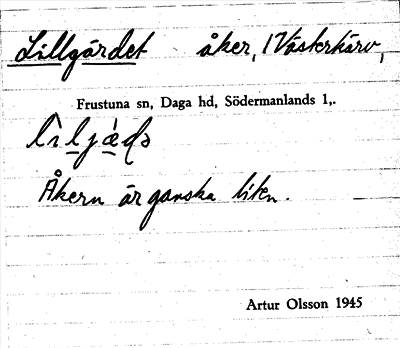 Lillgärdet åker, i Västerkärv,
Frustuna sn, Daga hd, Södermanlands l,.
Åkern är ganska liten.
Artur Olsson 1945